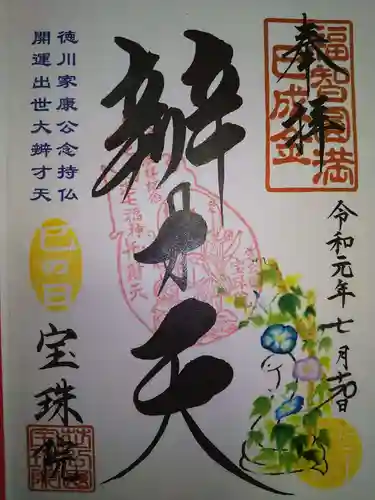 奉拝
福智円満
巳成金
令和元年七月十六日
辨才天
徳川家康公念持仏
開運出世大辨才天
巳の日
宝珠院